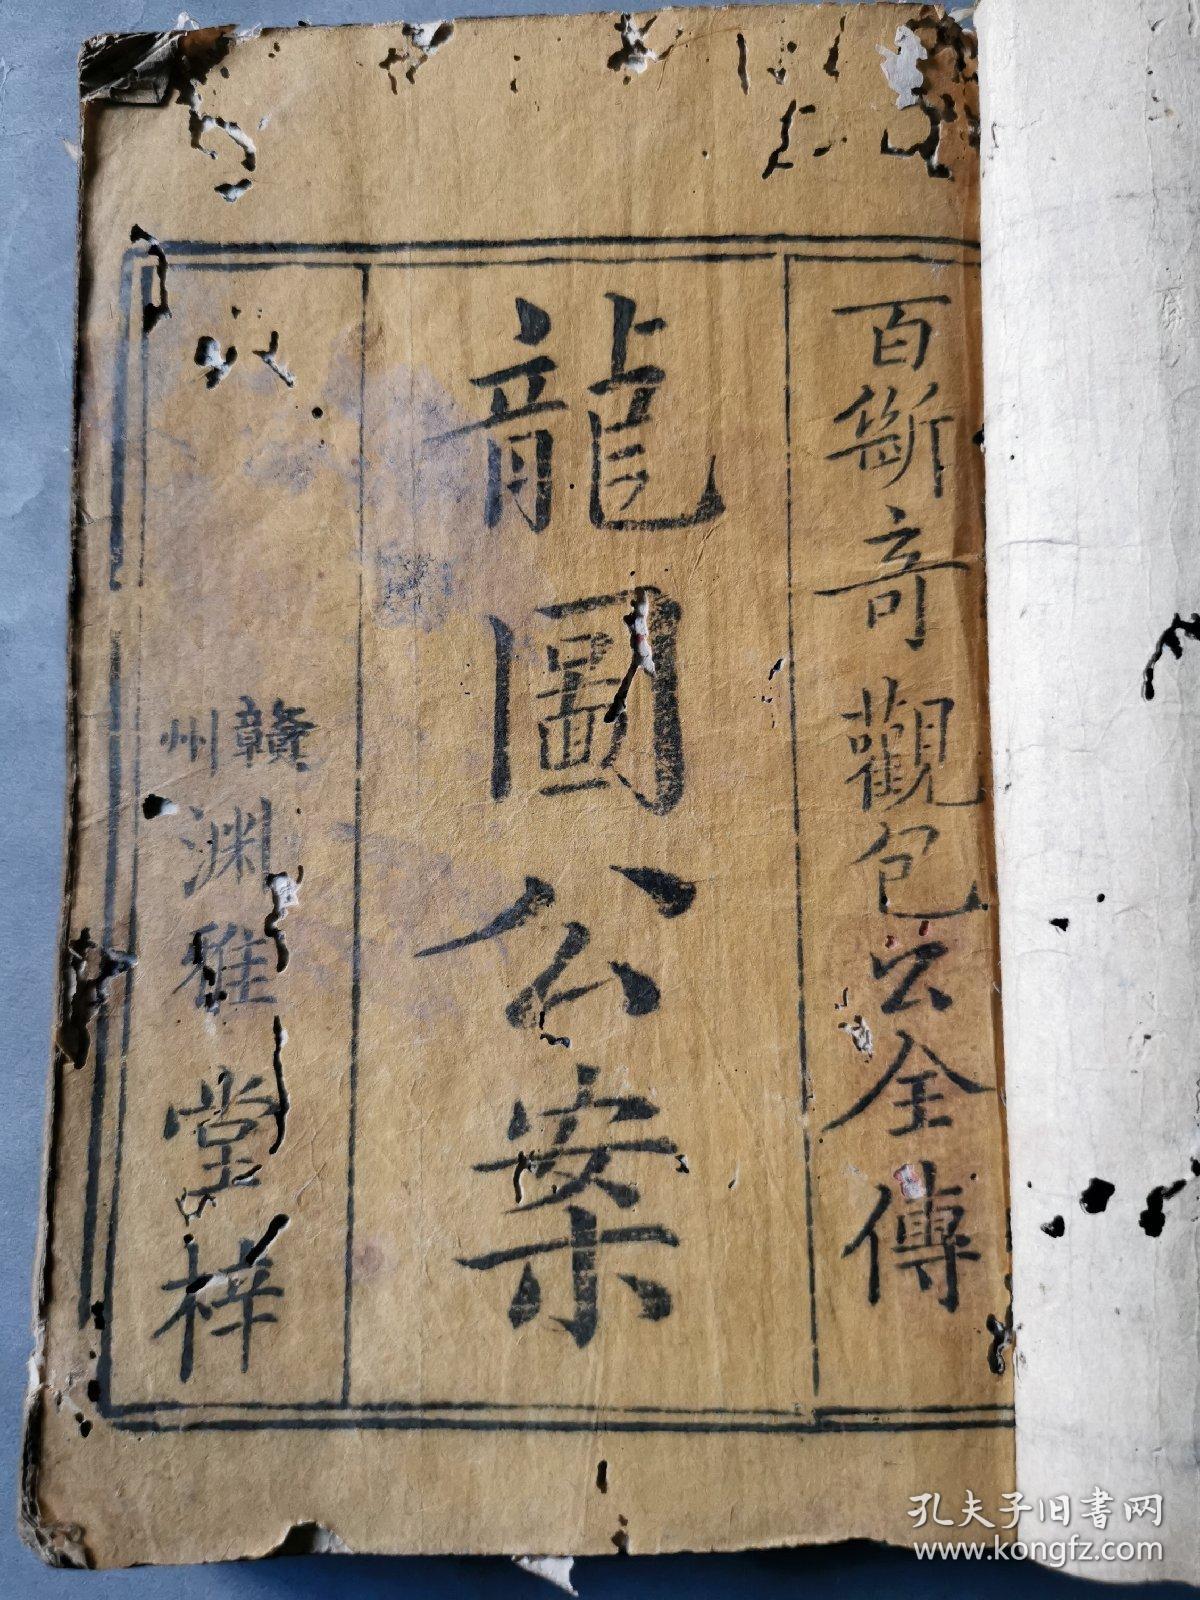 百斷奇觀包公全傳
龍圖公案
贛州
渊雅堂梓
孔夫子旧书网
www.kongfz.com